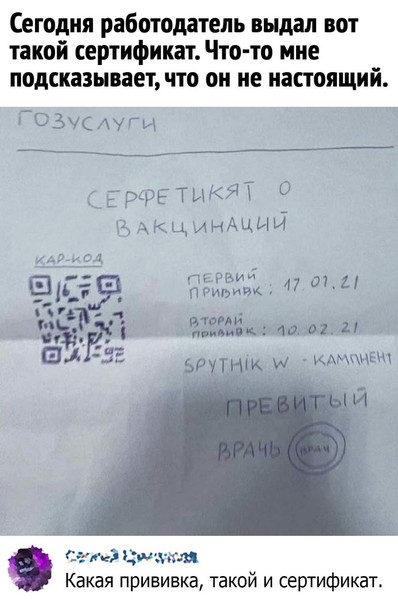 Сегодня работодатель выдал вот
такой сертификат. Что-то мне
подсказывает, что он не настоящий.
ГОЗУСЛУГИ
СЕРФЕТИКЯТ О
ВАКЦИНАЦИЙ
КАР-КОД
ПЕРВИЙ
ПРИВИВК : 17.01.21
ВТОРАЙ
ПРИВИВК : 10.02.21
SPYTHIK W - КАМПНЕНТ
ПРЕВИТЫЙ
ВРАЧЬ ВРАЧ
Какая прививка, такой и сертификат.